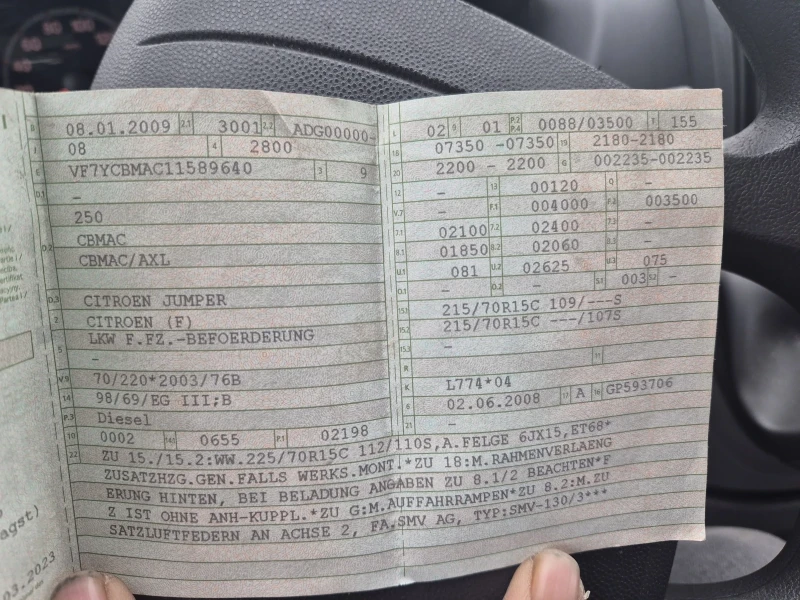 B 08.01.2009 2.1 3001 2.2 ADG00000-
J 08 4 2800
E VF7YCBMAC11589640 3 9
D.1 -
250
D.2 CBMAC
CBMAC/AXL
D.3 CITROEN JUMPER
2 CITROEN (F)
5 LKW F.FZ.-BEFOERDERUNG
-
V.9 70/220*2003/76B
14 98/69/EG III;B
P.3 Diesel
10 0002 14.1 0655 P.1 02198
L 02 9 01 P.2 P.4 0088/03500 T 155
18 07350 -07350 19 2180-2180
20 2200 - 2200 G 002235-002235
12 - 13 00120 Q -
V.7 - F.1 004000 F.2 003500
7.1 02100 7.2 02400 7.3 -
8.1 01850 8.2 02060 8.3 -
U.1 081 U.2 02625 U.3 075
O.1 - O.2 - S.1 003 S.2 -
15.1 215/70R15C 109/---S
15.2 215/70R15C ---/107S
15.3 -
R - 11
K L774*04
6 02.06.2008 17 A 16 GP593706
21 -
22 ZU 15./15.2:WW.225/70R15C 112/110S,A.FELGE 6JX15,ET68*
ZUSATZHZG.GEN.FALLS WERKS.MONT.*ZU 18:M.RAHMENVERLAENG
ERUNG HINTEN, BEI BELADUNG ANGABEN ZU 8.1/2 BEACHTEN*F
Z IST OHNE ANH-KUPPL.*ZU G:M.AUFFAHRRAMPEN*ZU 8.2:M.ZU
SATZLUFTFEDERN AN ACHSE 2, FA.SMV AG, TYP:SMV-130/3***
agst)
03.2023